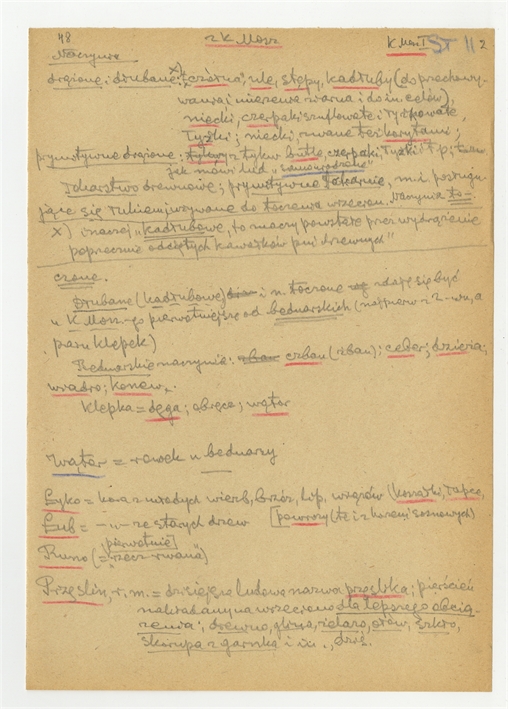 48 z K. Mosz. K. Mosz I ST II 2
Naczynia
drążone: dłubane: x) czółno, ule, stępy, kadłuby (do przechowy-
wania i mierzenia ziarna i do in. celów),
niecki, czerpaki szuflowate i łyżkowate,
łyżki; niecki, zwane też korytami;
prymitywne drążone: z tykw butle, czerpaki, łyżki itp;
jak mówi lud "samorodzne"
Tokarstwo drewniane; prymitywne tokarnie, m.i. posługu-
jące się łukiem, używane do toczenia wrzecion. Naczynia to-
x) inaczej "kadłubowe, to znaczy powstałe przez wydrążenie
poprzecznie odciętych kawałków pni drzewnych"
czone.
Dłubane (kadłubowe) i n. toczone zdają się być
u K. Mosz-go pierwotniejsze od bednarskich (najpierw z 2-wu, a
paru klepek)
Bednarskie naczynia: czban (żban); ceber; dzieża;
wiadro; konew.
Klepka = dęga; obręcz; wątor
Wątor = rowek u bednarzy
Łyko = kora z młodych wierzb, brzóz, lip, wiązów (koszałki, łapcie,
Łub = -"- ze starych drzew [powrozy (te i z korzeni sosnowych)
Runo (pierwotnie) (= "rzecz rwana")
Przęślin, r. m. = dzisiejsza ludowa nazwa prząślika; pierścień
nakładany na wrzeciono dla lepszego obcią-
żenia; drewno, glina, żelazo, ołów, szkło,
skorupa z garnka i in., dziś.